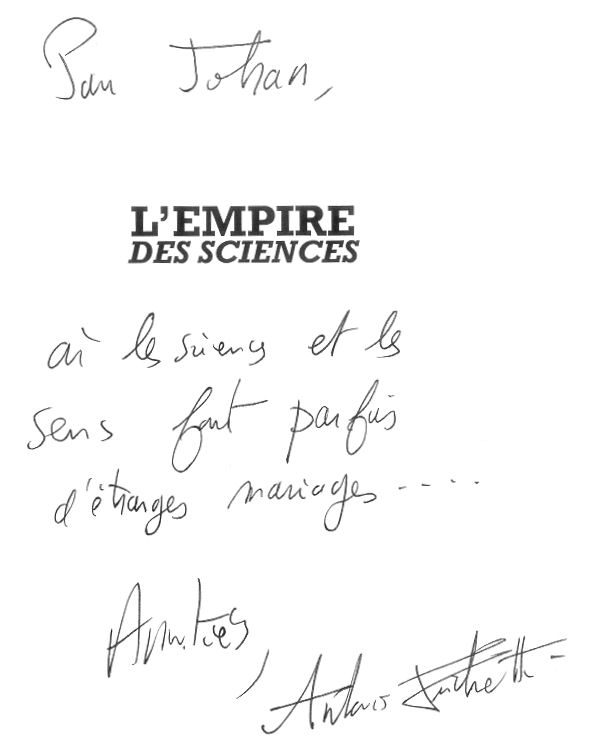 Pour Johan,
L'EMPIRE
DES SCIENCES
où les sciences et les
sens font parfois
d'étranges mariages.....
Amitiés,
Antonio Fischetti